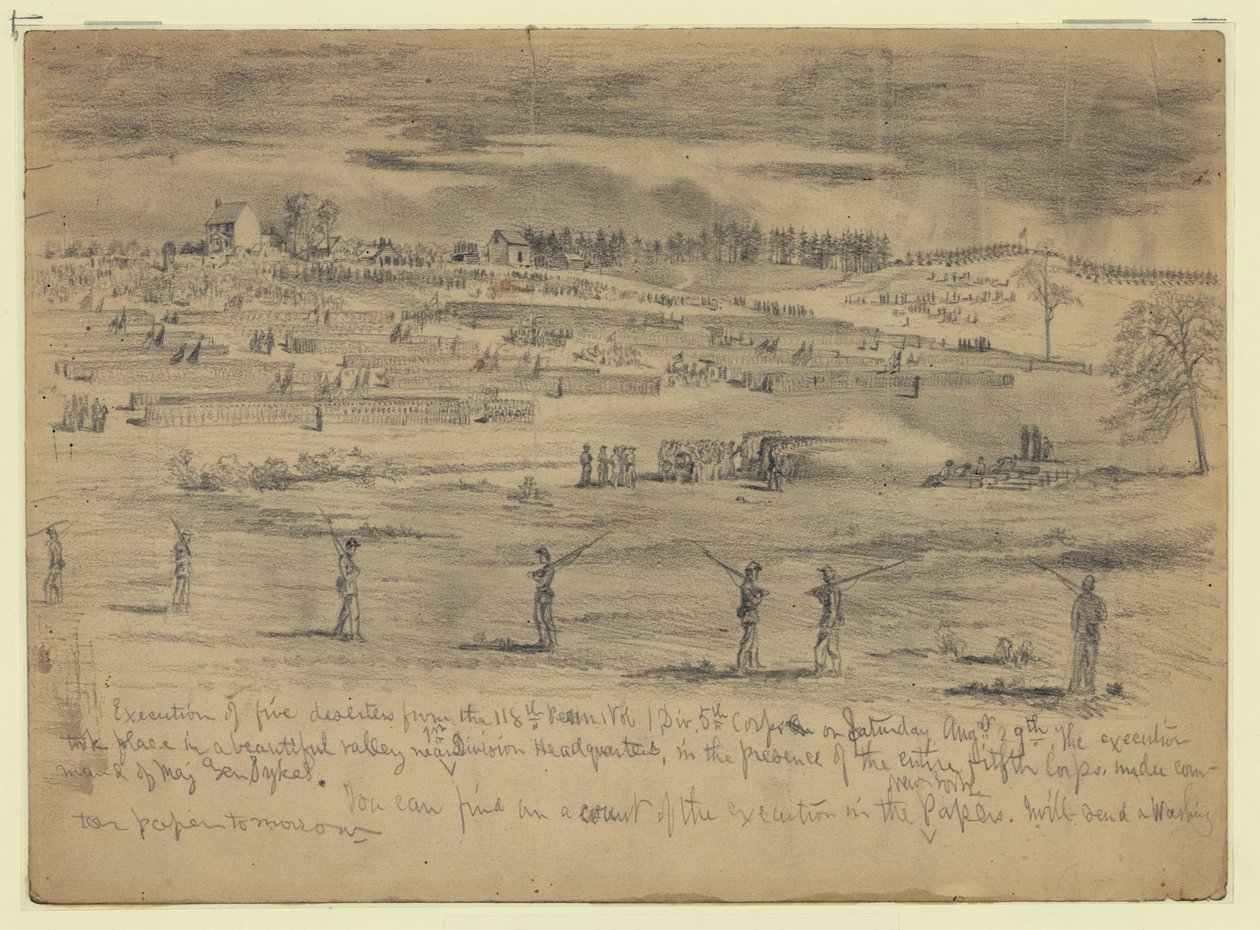 Execution of five deserters from the 118th Penn. Vol 1 Div. 5th Corps on Saturday Augst 29th, The execution
took place in a beautiful valley near 1st Division Headquarters, in the presence of the entire Fifth Corps, under com-
mand of Maj Gen Sykes.
You can find an acount of the execution in the New York Papers. Will send a Washing
ton paper tomorrow